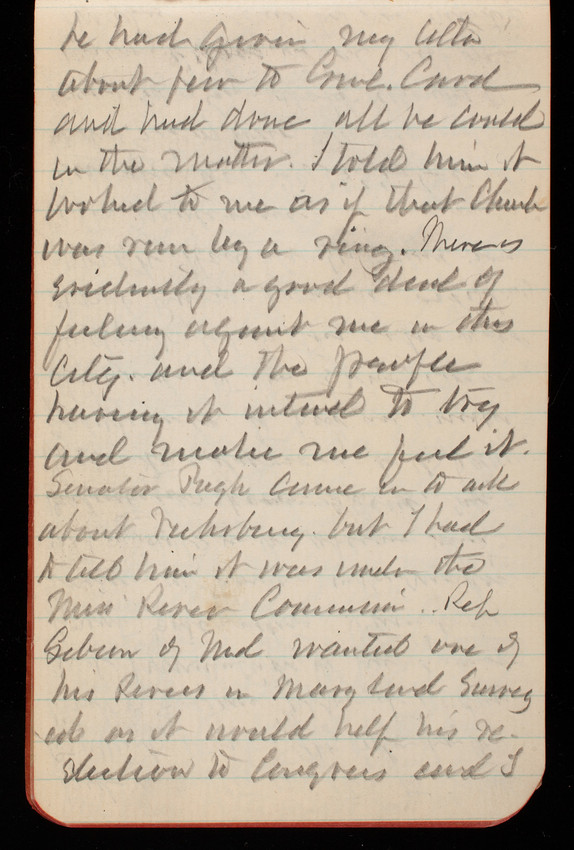 he had given my letter
about pew to Comt. Card
and had done all he could
in the matter. I told him it
looked to me as if that Church
was run by a ring. There is
evidently a good deal of
feeling against me in this
City. and the people
having it intend to try
and make me feel it.
Senator Pugh came in to ask
about Vicksburg. but I had
to tell him it was under the
Miss River Commission.. Rep
Gibson of Md wanted one of
his Rivers in Maryland Survey
ed as it would help his re-
election to Congress and I